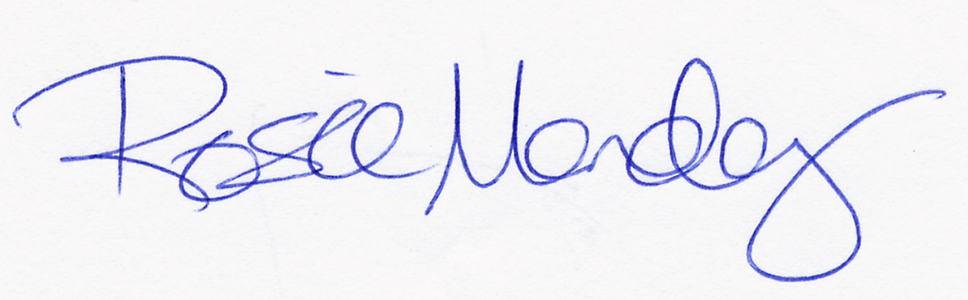 Rosie Mendez